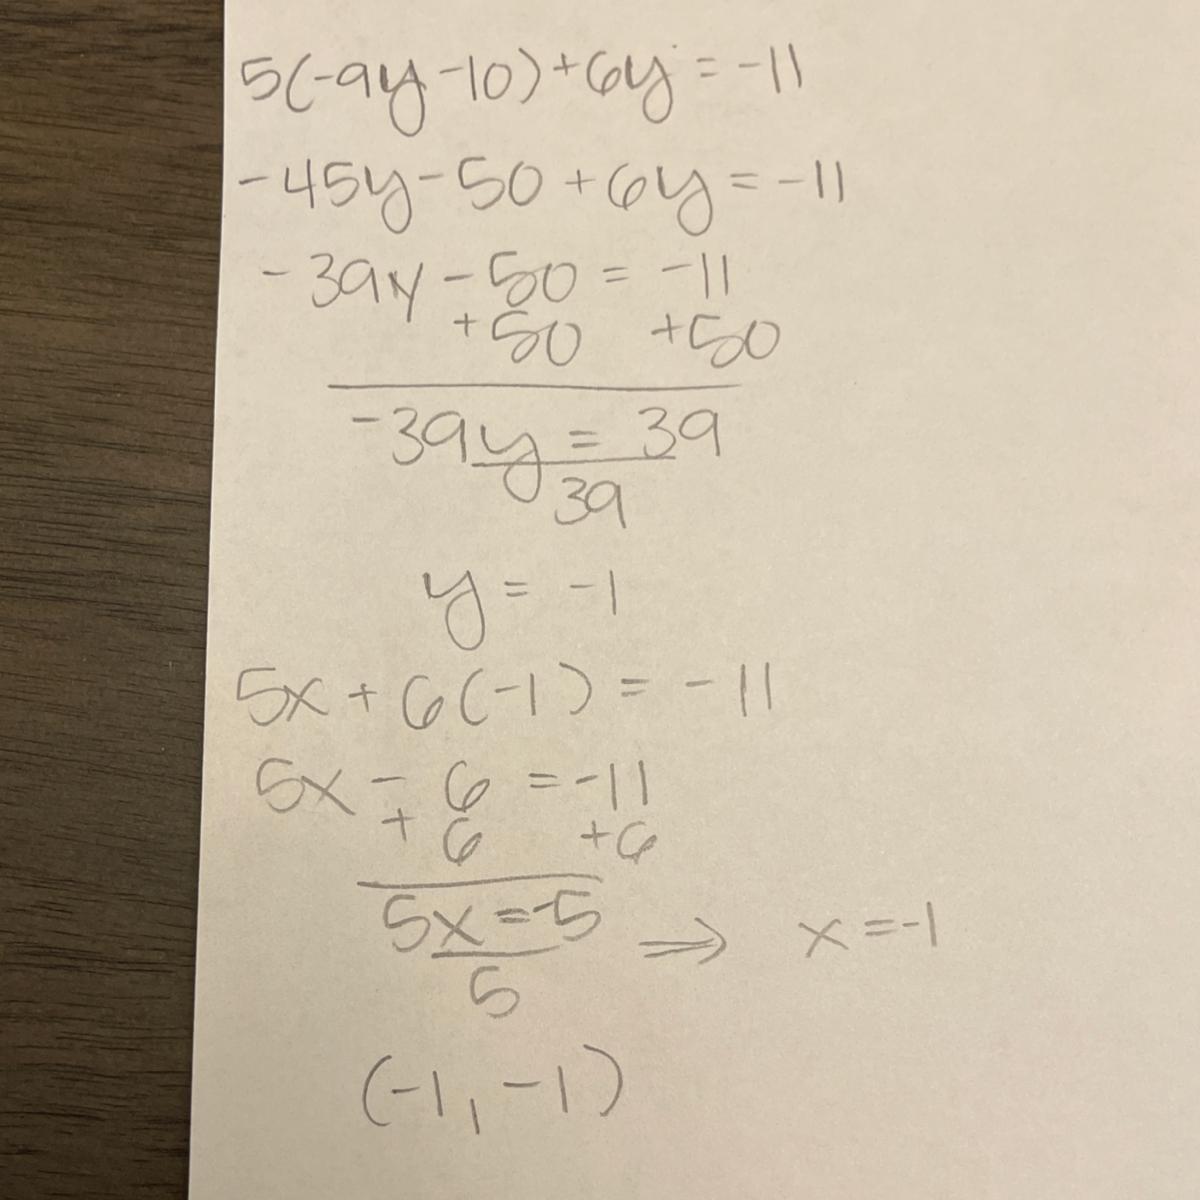 5(-9y-10)+6y = -11
-45y-50+6y = -11
-39y-50 = -11
+50 +50
-39y = 39
39
y = -1
5x + 6(-1) = -11
5x - 6 = -11
+ 6 +6
5x = -5 ⇒ x = -1
5
(-1, -1)